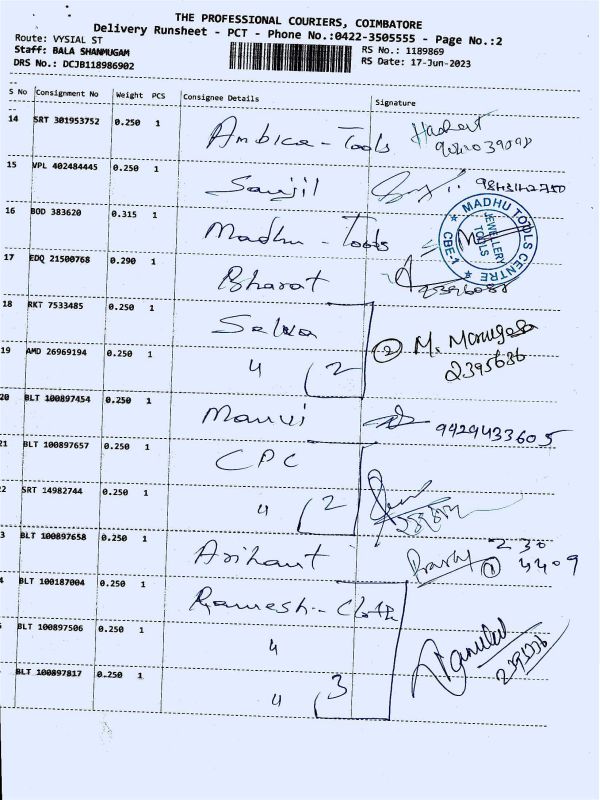 THE PROFESSIONAL COURIERS, COIMBATORE
Delivery Runsheet - PCT - Phone No.:0422-3505555 - Page No.:2
Route: VYSIAL ST
Staff: BALA SHANMUGAM
DRS No.: DCJB118986902
RS No.: 1189869
RS Date: 17-Jun-2023
S No Consignment No Weight PCS Consignee Details Signature
14 SRT 301953752 0.250 1 Ambica - Tools
15 VPL 402484445 0.250 1 Sanjil
16 BOD 383620 0.315 1 Madhu - Tools
MADHU TOOLS CENTRE CBE-1 JEWELLERY TOOLS
17 EDQ 21500768 0.290 1 Bharat
18 RKT 7533485 0.250 1 Selva
19 AMD 26969194 0.250 1 4 2
2 M. Murugesa
2395636
20 BLT 100897454 0.250 1 Manvi 9429433605
21 BLT 100897657 0.250 1 CPC
2 SRT 14982744 0.250 1 4 2
3 BLT 100897658 0.250 1 Arihant 230
1 4409
4 BLT 100187004 0.250 1 Ramesh - Cloth
BLT 100897506 0.250 1 4
BLT 100897817 0.250 1 4 3